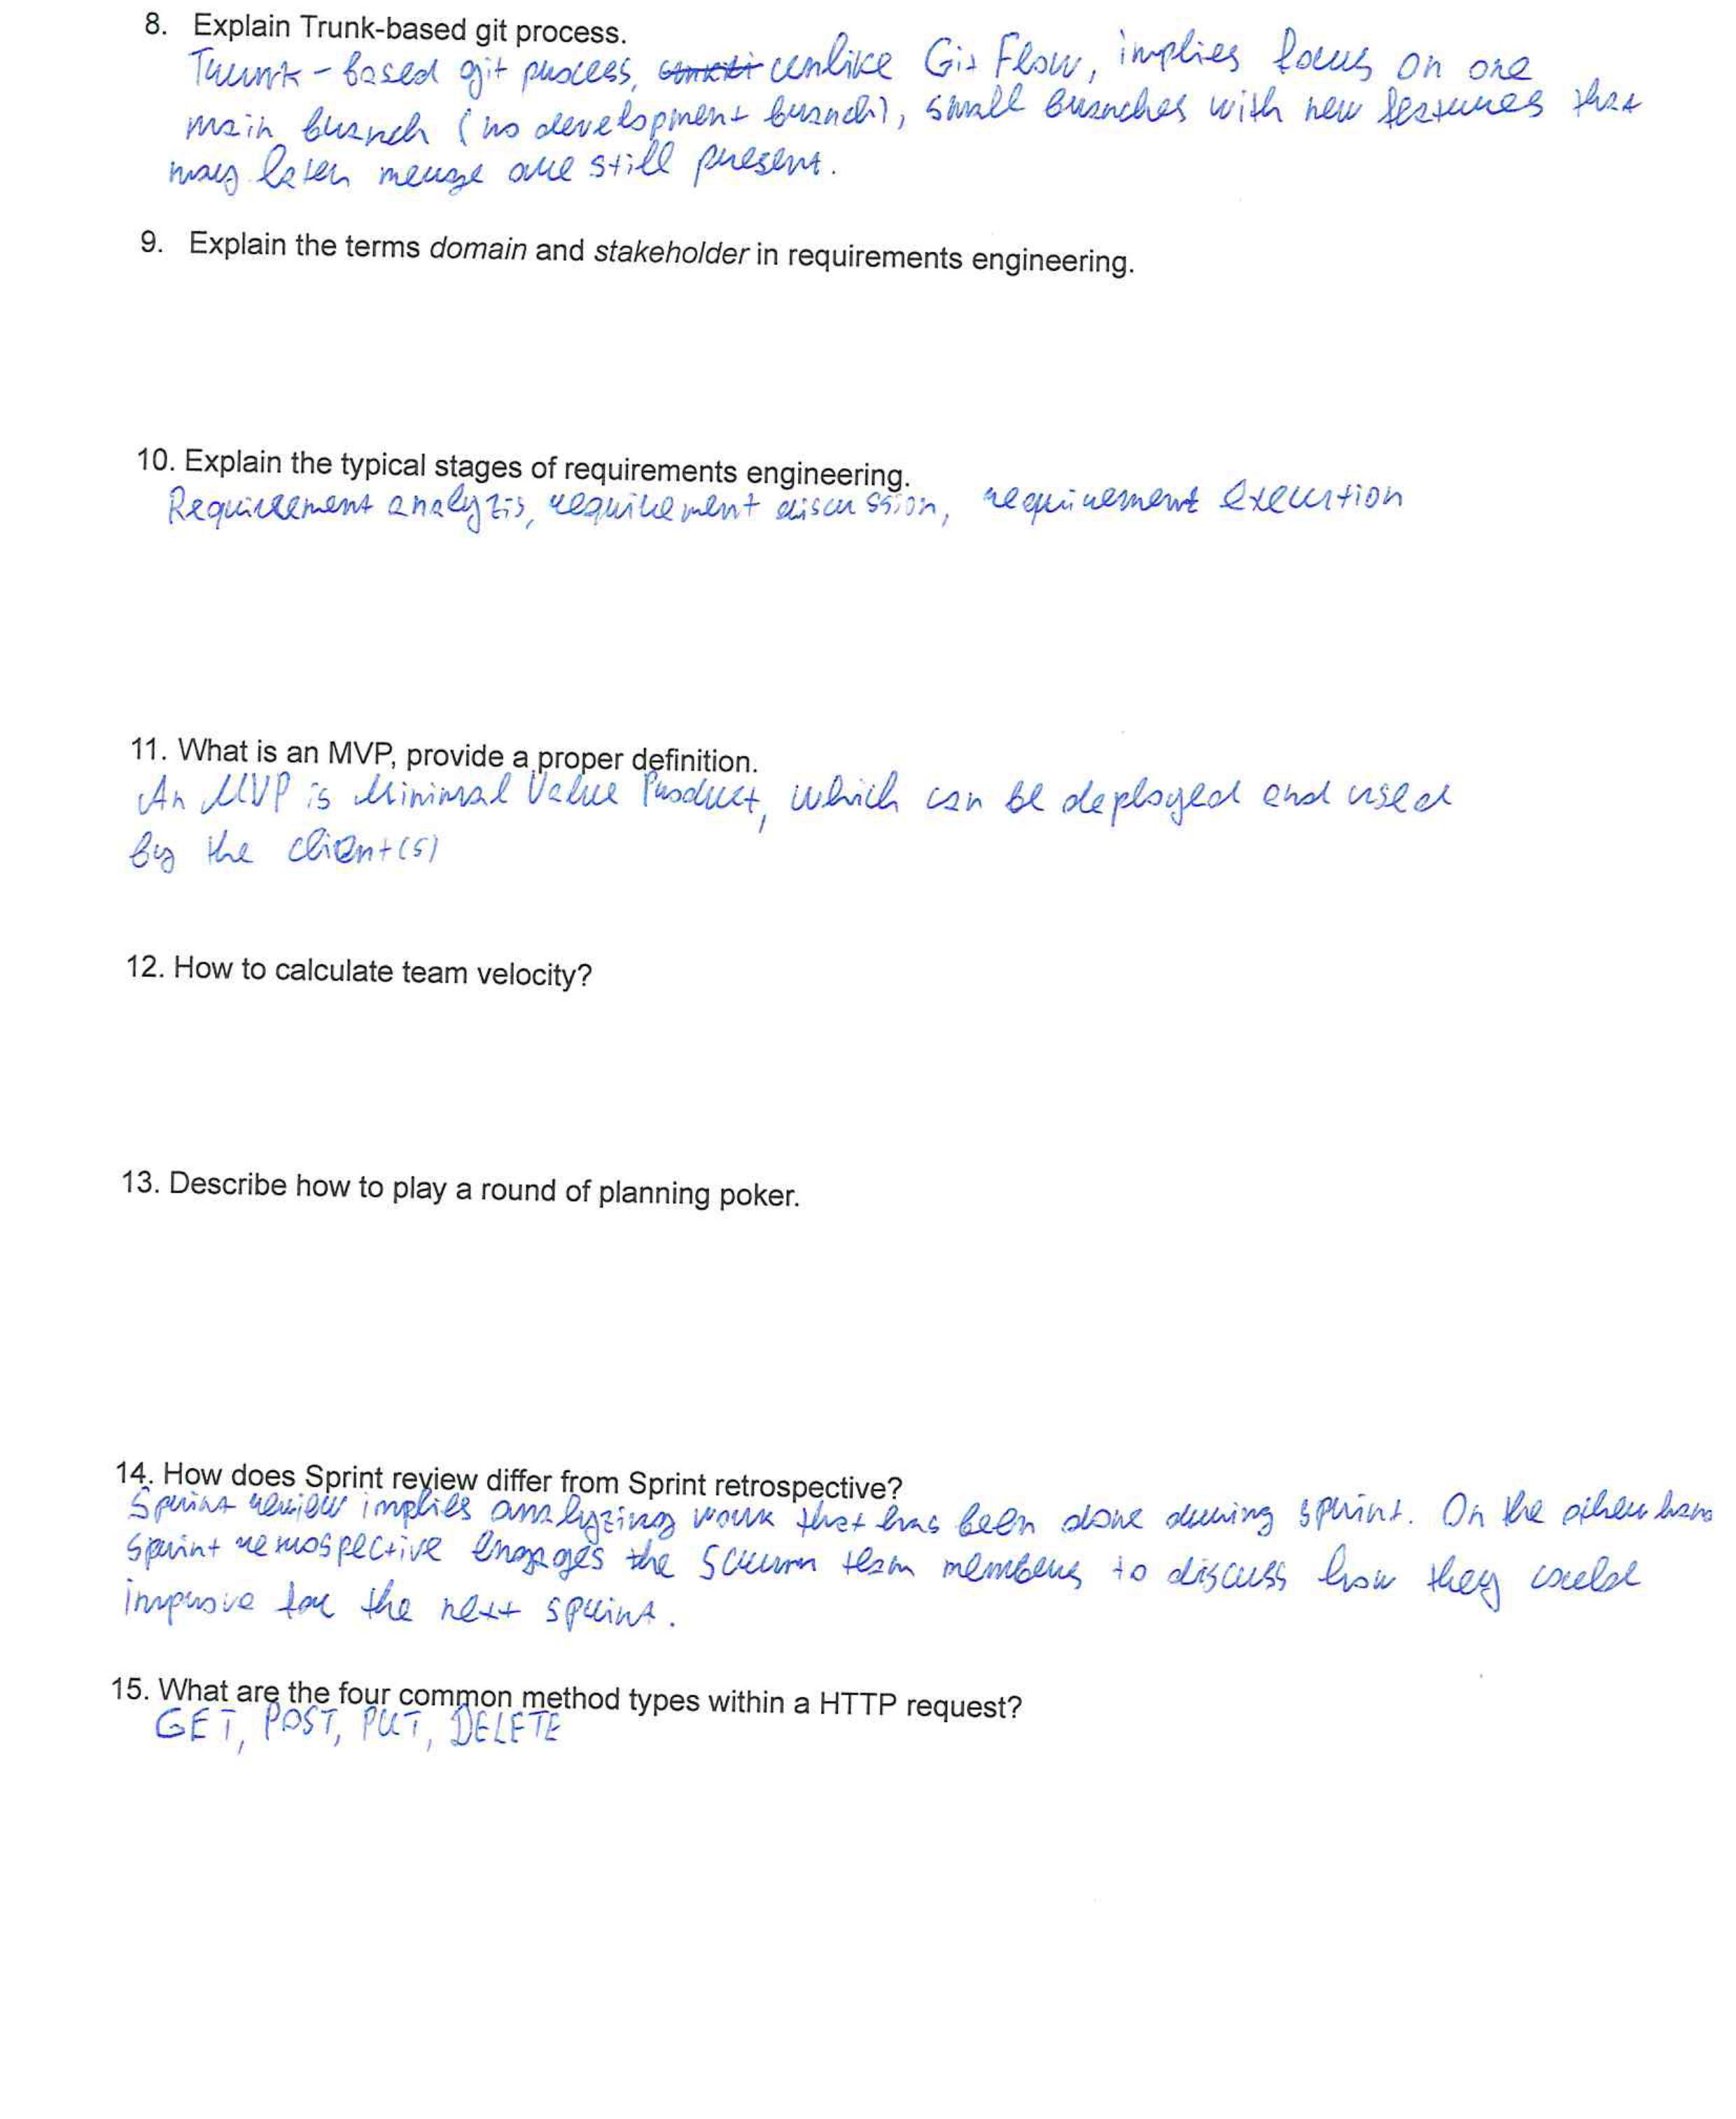 8. Explain Trunk-based git process.
Trunk-based git process, unlike Git Flow, implies focus on one
main branch (no development branch), small branches with new features that
may later merge are still present.
9. Explain the terms domain and stakeholder in requirements engineering.
10. Explain the typical stages of requirements engineering.
Requirement analyzis, requirement discussion, requirement execution
11. What is an MVP, provide a proper definition.
An MVP is Minimal Value Product, which can be deployed and used
by the client(s)
12. How to calculate team velocity?
13. Describe how to play a round of planning poker.
14. How does Sprint review differ from Sprint retrospective?
Sprint review implies analyzing work that has been done during sprint. On the other han
sprint retrospective engages the scrum team members to discuss how they could
improve for the next sprint.
15. What are the four common method types within a HTTP request?
GET, POST, PUT, DELETE